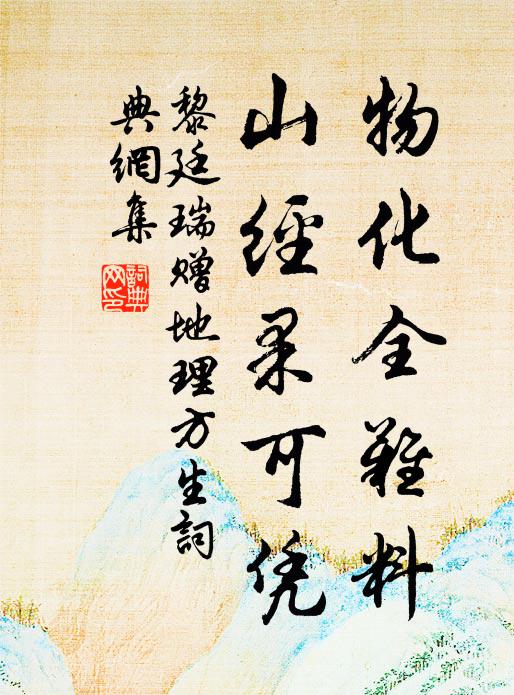 物化全難料
山經果可凭
黎廷瑞贈地理方生詞
典網集
詞典網印